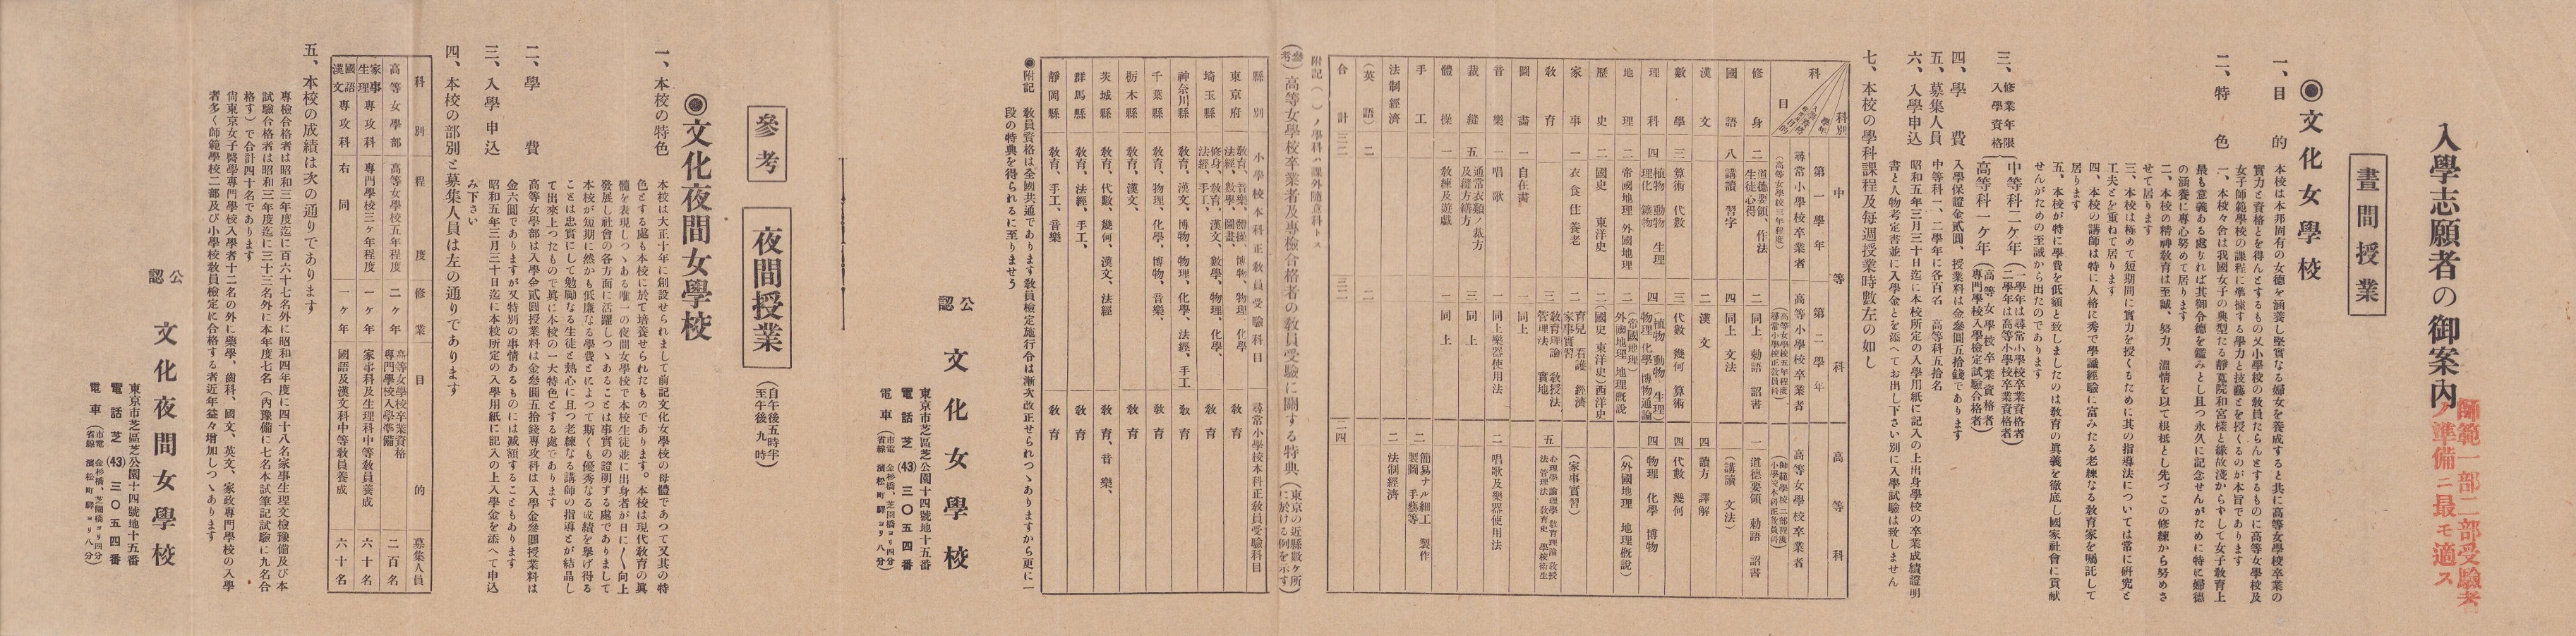 入學志願者の御案內
師範一部二部受驗者
ノ準備ニ最モ適ス
晝間授業
◉文化女學校
一、目的
本校は本邦固有の女德を涵養し堅實なる婦女を養成すると共に高等女學校卒業の
實力と資格とを得んとするもの又小學校の敎員たらんとするものに高等女學校及
女子師範學校の課程に準據する學力と技藝とを授くるのが本旨であります
二、特色
一、本校々舍は我國女子の典型たる靜寬院和宮樣と緣故淺からずして女子敎育上
最も意義ある處なれば其御令德を鑑みとし且つ永久に記念せんがために特に婦德
の涵養に專心努めて居ります
二、本校の精神敎育は至誠、努力、溫情を以て根柢とし先づこの修練から努めさ
せて居ります
三、本校は極めて短期間に實力を授くるために其の指導法については常に硏究と
工夫とを重ねて居ります
四、本校の講師は特に人格に秀で學識經驗に富みたる老練なる敎育家を囑託して
居ります
五、本校が特に學費を低額と致しましたのは敎育の眞義を徹底し國家社會に貢獻
せんがための至誠から出たのであります
三、修業年限 入學資格
中等科二ケ年(一學年は尋常小學校卒業資格者)
(二學年は高等小學校卒業資格者)
高等科一ケ年(高等女學校卒業資格者)
(專門學校入學檢定試驗合格者)
四、學費
入學保證金貳圓、授業料は金參圓五拾錢であります
五、募集人員
中等科一、二學年に各百名 高等科五拾名
六、入學申込
昭和五年三月三十日迄に本校所定の入學用紙に記入の上出身學校の卒業成績證明
書と人物考定書並に入學金とを添へてお出し下さい別に入學試驗は致しません
七、本校の學科課程及每週授業時數左の如し
科別 學年 入學資格 科目
中等科 高等科
第一學年 第二學年
尋常小學校卒業者 高等小學校卒業者 高等女學校卒業者
(高等女學校三年程度) (高等女學校五年程度) (尋常小學校正敎員科) (師範學校二部程度) (小學校本科正敎員科)
修身 二 道德要領、作法 生徒心得 二 同上 勅語 詔書 一 道德要領 勅語 詔書
國語 八 講讀 習字 四 同上 文法 (講讀 文法)
漢文 二 漢文 四 讀方 譯解
數學 三 算術 代數 三 代數 幾何 算術 四 代數 幾何
理科 四 植物 動物 生理 理化 鑛物 四 (植物 動物 生理) 物理 化學 博物通論 四 物理 化學 博物
地理 二 帝國地理 外國地理 二 (帝國地理) 外國地理 地理槪說 (外國地理 地理槪說)
歷史 二 國史 東洋史 二 (國史 東洋史)西洋史
家事 一 衣食住 養老 二 育兒 看護 經濟 家事實習 (家事實習)
敎育 三 敎育理論 敎授法 管理法 實地 五 心理學 論理學 敎育理論 敎授法 管理法 敎育史 學校衞生
圖畵 一 自在畵 一 同上
音樂 一 唱歌 一 同上樂器使用法 二 唱歌及樂器使用法
裁縫 五 通常衣類ノ裁方及縫方繕方 三 同上
體操 一 敎練及遊戲 一 同上
手工 二 簡易ナル細工 製作 製圖 手藝等
法制經濟 二 法制經濟
(英語) 二 二
合計 三二 三二 二四
附記( )ノ學科ハ課外隨意科トス
(參考)高等女學校卒業者及專檢合格者の敎員受驗に關する特典(東京の近縣數ケ所に於ける例を示す)
縣別 小學校本科正敎員受驗科目 尋常小學校本科正敎員受驗科目
東京府 敎育、音樂、體操、博物、物理、化學 法經、數學、圖畵、 敎育
埼玉縣 修身、敎育、漢文、數學、物理、化學、法經、手工、 敎育
神奈川縣 敎育、漢文、博物、物理、化學、法經、手工 敎育
千葉縣 敎育、物理、化學、博物、音樂、 敎育
栃木縣 敎育、漢文、 敎育
茨城縣 敎育、代數、幾何、漢文、法經 敎育、音樂、
群馬縣 敎育、法經、手工、 敎育
靜岡縣 敎育、手工、音樂 敎育
●附記 敎員資格は全國共通であります敎員檢定施行令は漸次改正せられつゝありますから更に一
段の特典を得られるに至りませう
公認 文化女學校
東京市芝區芝公園十四號地十五番
電話芝(43)三〇五四番
電車(市電 金杉橋、芝園橋ヨリ四分)
(省線 濱松町驛ヨリ八分)
參考 夜間授業 (自午後五時半 至午後九時)
◉文化夜間女學校
一、本校の特色
本校は大正十年に創設せられまして前記文化女學校の母體であつて又其の特
色とする處も本校に於て培養せられたものであります。本校は現代敎育の眞
髓を表現しつゝある唯一の夜間女學校で本校生徒並に出身者が日に〱向上
發展し社會の各方面に活躍しつゝあることは事實の證明する處でありまして
本校が短期に然かも低廉なる學費とによつて斯くも優秀なる成績を擧げ得る
ことは忠實にして勉勵なる生徒と熱心に且つ老練なる講師の指導とが結晶し
て出來上つたもので眞に本校の一大特色とする處であります
二、學費
高等女學部は入學金貳圓授業料は金參圓五拾錢專攻科は入學金參圓授業料は
金六圓でありますが又特別の事情あるものには減額することもあります
三、入學申込
昭和五年三月三十日迄に本校所定の入學用紙に記入の上入學金を添へて申込
み下さい
四、本校の部別と募集人員は左の通りであります
科別 程度 修業 目的 募集人員
高等女學部 高等女學校五年程度 二ケ年 高等女學校卒業資格 專門學校入學準備 二百名
家事生理專攻科 專門學校三ケ年程度 一ケ年 家事科及生理科中等敎員養成 六十名
國語漢文專攻科 右同 一ケ年 國語及漢文科中等敎員養成 六十名
五、本校の成績は次の通りであります
專檢合格者は昭和三年度迄に百六十七名外に昭和四年度に四十八名家事生理文檢豫備及び本
試驗合格者は昭和三年度迄に三十三名外に本年度七名(內豫備に七名本試筆記試驗に九名合
格す)で合計四十名であります
尙東京女子醫學專門學校入學者十二名の外に藥學、齒科、國文、英文、家政專門學校の入學
者多く師範學校二部及び小學校敎員檢定に合格する者近年益々增加しつゝあります
公認 文化夜間女學校
東京市芝區芝公園十四號地十五番
電話芝(43)三〇五四番
電車(市電 金杉橋、芝園橋ヨリ四分)
(省線 濱松町驛ヨリ八分)